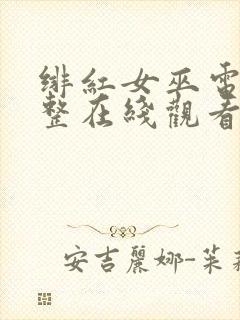 绯红女巫電
整在綫觀看
安吉麗娜-茱莉